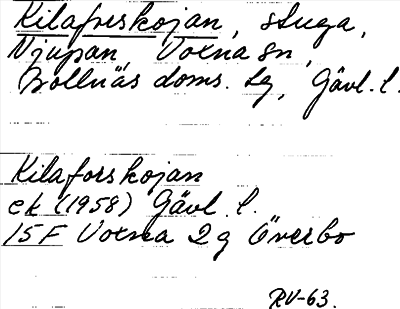 Kilaforskojan, stuga,
Njupan, Voxna sn,
Bollnäs doms. tg, Gävl. l.
Kilaforskojan
ek (1958) Gävl. l.
15F Voxna 2g Överbo
RV-63.